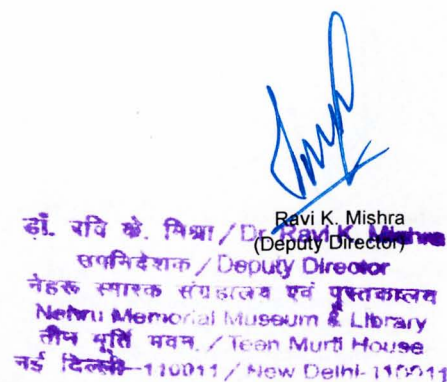 Ravi K. Mishra
(Deputy Director)
डॉ. रवि के. मिश्रा / Dr. Ravi K. Mishra
उपनिदेशक / Deputy Director
नेहरू स्मारक संग्रहालय एवं पुस्तकालय
Nehru Memorial Museum & Library
तीन मूर्ति भवन, / Teen Murti House
नई दिल्ली-110011 / New Delhi-110011